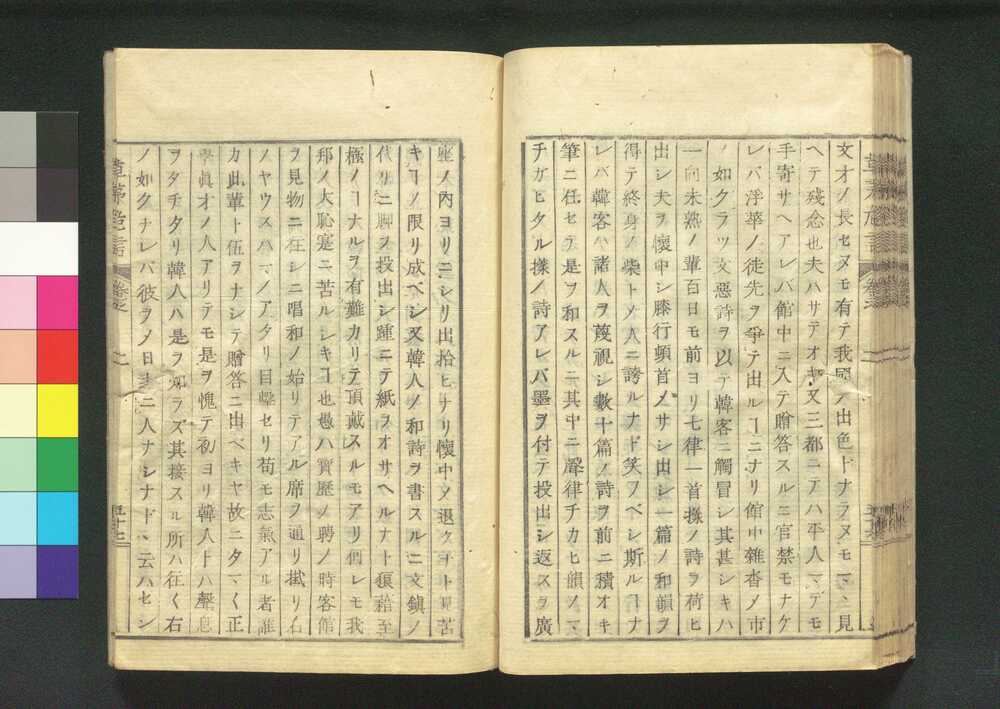 文才ノ長セヌモ有テ我國ノ出色トナラヌモマヽ見
ヘテ殘念也夫ハサテオキ又三都ニテハ平人マデモ
手寄サヘアレバ館中ニ入テ贈答スルニ官禁モナケ
レバ浮華ノ徒先ヲ爭テ出ルヿニナリ館中雜沓メ市
ノ如クラツ文惡詩ヲ以テ韓客ニ觸冒シ其甚シキハ
一向未熟ノ輩百日モ前ヨリ七律一首様ノ詩ヲ荷ヒ
出シ夫ヲ懷中シ膝行頓首メサシ出シ一篇ノ和韻ヲ
得テ終身ノ榮トメ人ニ誇ルナド笑フベシ斯ルヿナ
レバ韓客ハ諸人ヲ蔑視シ數十篇ノ詩ヲ前ニ積オキ
筆ニ任セテ是ヲ和スルニ其中ニ聲律チカヒ韻ノマ
チガヒタル様ノ詩アレバ墨ヲ付テ投出シ返スヲ廣
座ノ内ヨリニシリ出拾ヒナリ懷中メ退クナト見苦
キヿノ限リ成ベシ又韓人ノ和詩ヲ書スルニ文鎮ノ
代リニ脚ヲ投出シ踵ニテ紙ヲオサヘルナト猥褻至
極ノヿナルヲ有難カリテ頂戴スルモアリ何レモ我
邦ノ大恥寔ニ苦ルシキヿ也愚ハ寶歴ノ聘ノ時客館
ヲ見物ニ在シニ唱和ノ始リテアル席ヲ通リ掛リ右
ノヤウスハマノアタリ目擊セリ苟モ志氣アル者誰
カ此輩ト伍ヲナシテ贈答ニ出ベキヤ故ニタマく正
學眞才ノ人アリテモ是ヲ愧テ初ヨリ韓人トハ聲息
ヲタチタリ韓人ハ是ヲ知ラズ其接スル所ハ往く右
ノ如クナレバ彼ヲメ日本ニ人ナシナドヽ云ハセン
草茅危言
五十七